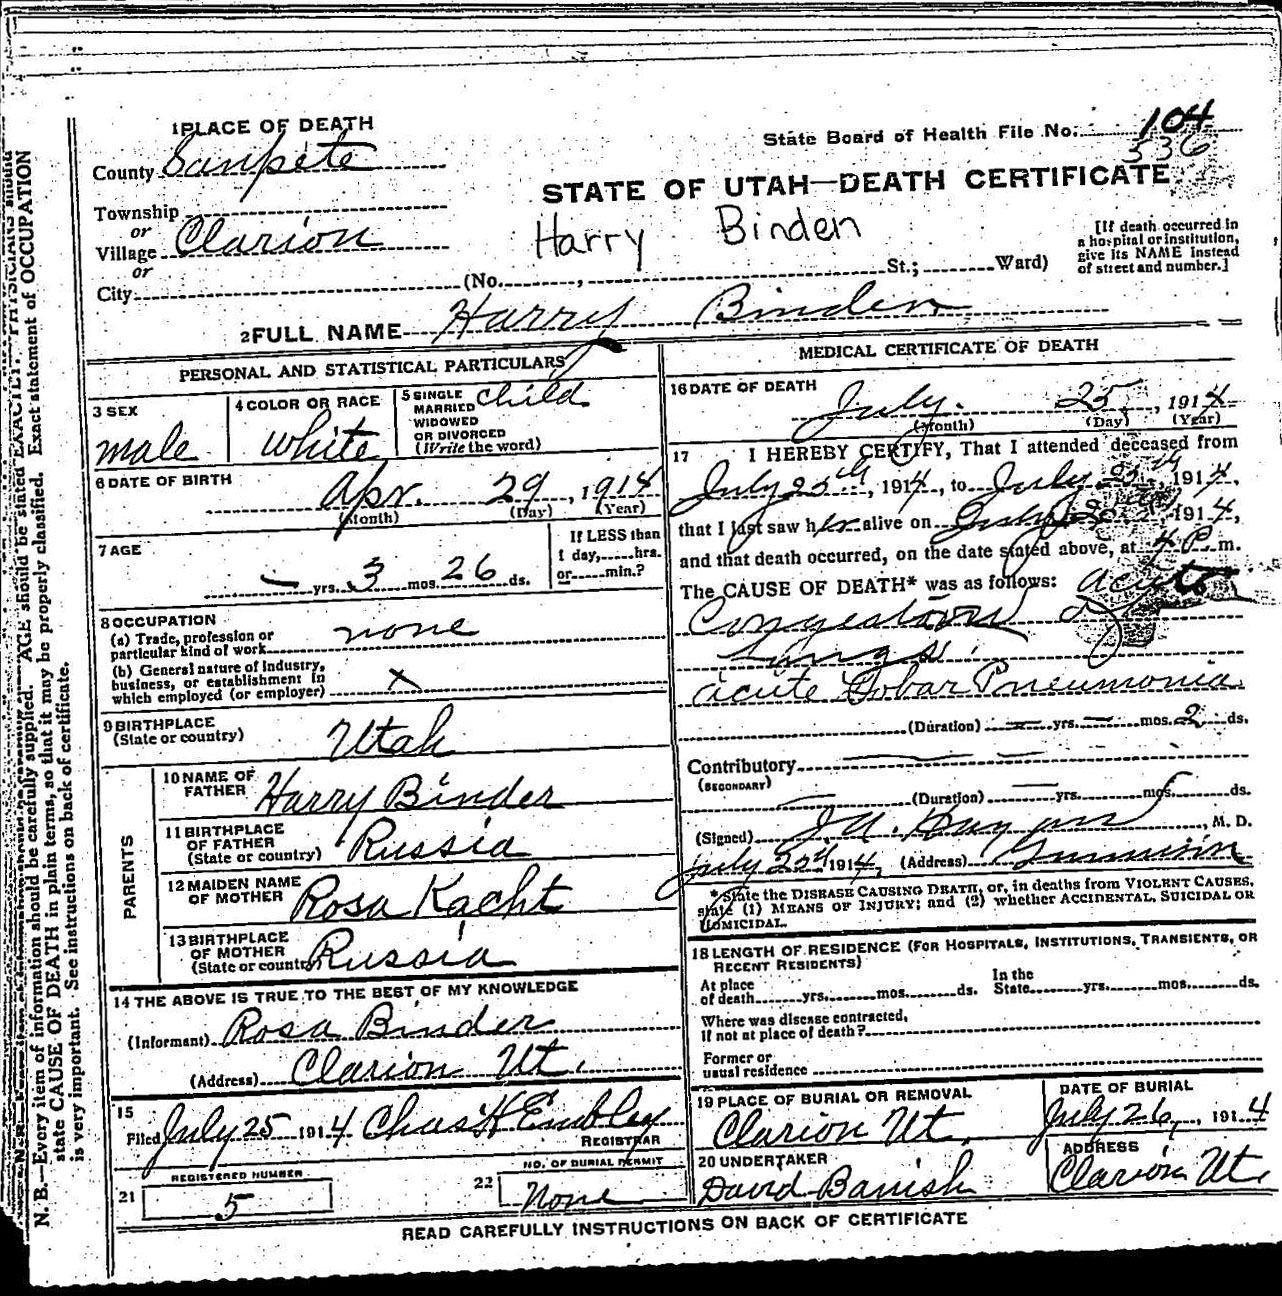 1 PLACE OF DEATH
State Board of Health File No. 104
536
County Sanpete
STATE OF UTAH—DEATH CERTIFICATE
Township
or
Village Clarion
Harry Binden
[If death occurred in
a hospital or institution,
give its NAME instead
of street and number.]
or
City (No. , St.; Ward)
2 FULL NAME Harry Binden
PERSONAL AND STATISTICAL PARTICULARS
3 SEX
male
4 COLOR OR RACE
white
5 SINGLE
MARRIED
WIDOWED
OR DIVORCED
(Write the word)
child
6 DATE OF BIRTH
Apr. 29, 1914
(Month) (Day) (Year)
7 AGE
— yrs. 3 mos. 26 ds.
If LESS than
1 day, hrs.
or min.?
8 OCCUPATION
(a) Trade, profession or
particular kind of work none
(b) General nature of industry,
business, or establishment in
which employed (or employer) x
9 BIRTHPLACE
(State or country) Utah
PARENTS
10 NAME OF
FATHER Harry Binder
11 BIRTHPLACE
OF FATHER
(State or country) Russia
12 MAIDEN NAME
OF MOTHER Rosa Kacht
13 BIRTHPLACE
OF MOTHER
(State or country) Russia
14 THE ABOVE IS TRUE TO THE BEST OF MY KNOWLEDGE
(Informant) Rosa Binder
(Address) Clarion Ut.
15
Filed July 25 1914 Chas H Embley
REGISTRAR
REGISTERED NUMBER
21 5
NO. OF BURIAL PERMIT
22 None
MEDICAL CERTIFICATE OF DEATH
16 DATE OF DEATH
July. 25, 1914
(Month) (Day) (Year)
17 I HEREBY CERTIFY, That I attended deceased from
July 25th, 1914, to July 25th 1914,
that I last saw h alive on July 1914,
and that death occurred, on the date stated above, at 4 P m.
The CAUSE OF DEATH* was as follows: Acute
Congestion of
Lungs.
acute Lobar Pneumonia
(Duration) — yrs. — mos. 2 ds.
Contributory
(SECONDARY)
(Duration) yrs. mos. ds.
(Signed) M. D.
July 1914, (Address) Gunnison
*State the DISEASE CAUSING DEATH, or, in deaths from VIOLENT CAUSES,
state (1) MEANS OF INJURY; and (2) whether ACCIDENTAL, SUICIDAL OR
HOMICIDAL.
18 LENGTH OF RESIDENCE (FOR HOSPITALS, INSTITUTIONS, TRANSIENTS, OR
RECENT RESIDENTS)
At place
of death yrs. mos. ds.
In the
State yrs. mos. ds.
Where was disease contracted,
if not at place of death?
Former or
usual residence
19 PLACE OF BURIAL OR REMOVAL
Clarion Ut.
DATE OF BURIAL
July 26, 1914
20 UNDERTAKER
David Banish
ADDRESS
Clarion Ut.
READ CAREFULLY INSTRUCTIONS ON BACK OF CERTIFICATE
N. B.—Every item of information should be carefully supplied. AGE should be stated EXACTLY. PHYSICIANS should
state CAUSE OF DEATH in plain terms, so that it may be properly classified. Exact statement of OCCUPATION
is very important. See instructions on back of certificate.